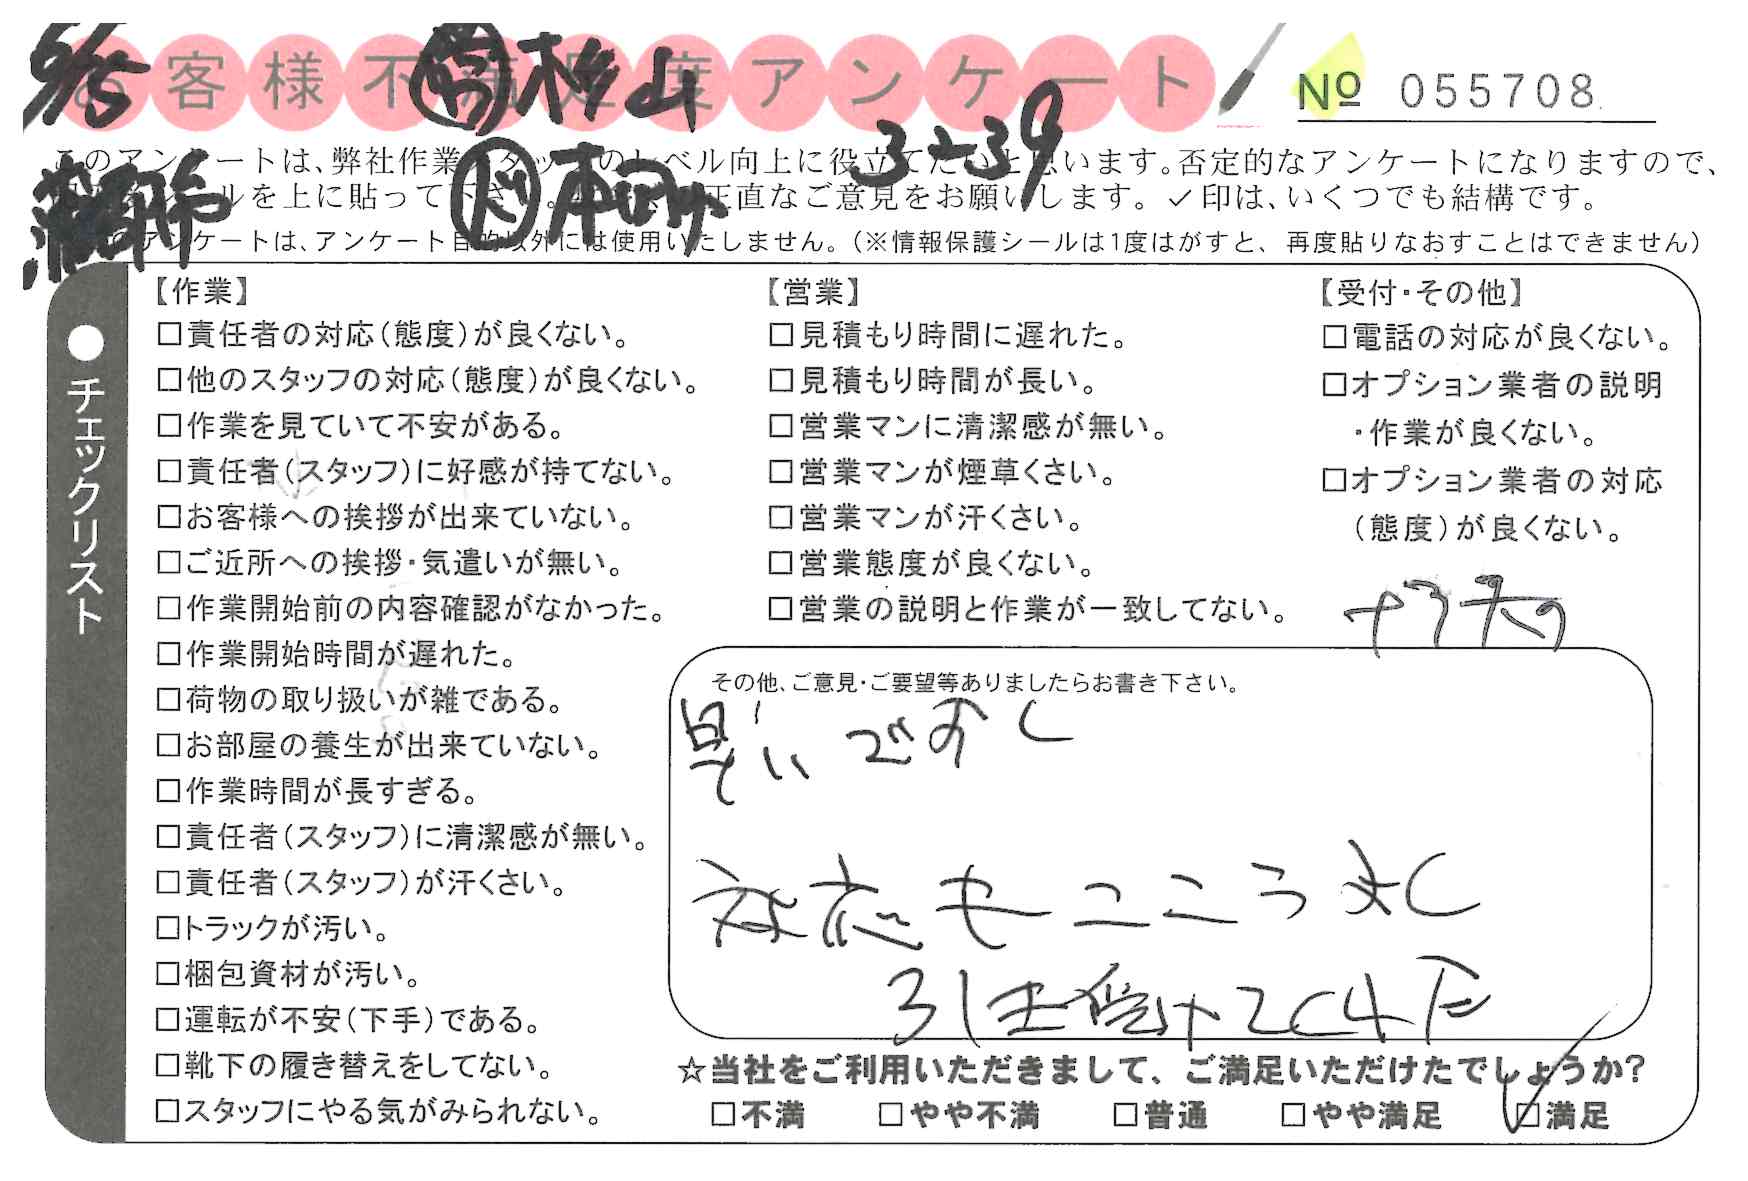 5/15
お客様不満足度アンケート
営 杉山
No 055708
32-39
このアンケートは、弊社作業スタッフのレベル向上に役立てたいと思います。否定的なアンケートになりますので、
ルを上に貼って下さい。 正直なご意見をお願いします。✓印は、いくつでも結構です。
アンケートは、アンケート目的以外には使用いたしません。(※情報保護シールは1度はがすと、再度貼りなおすことはできません)
●チェックリスト
【作業】
□責任者の対応(態度)が良くない。
□他のスタッフの対応(態度)が良くない。
□作業を見ていて不安がある。
□責任者(スタッフ)に好感が持てない。
□お客様への挨拶が出来ていない。
□ご近所への挨拶・気遣いが無い。
□作業開始前の内容確認がなかった。
□作業開始時間が遅れた。
□荷物の取り扱いが雑である。
□お部屋の養生が出来ていない。
□作業時間が長すぎる。
□責任者(スタッフ)に清潔感が無い。
□責任者(スタッフ)が汗くさい。
□トラックが汚い。
□梱包資材が汚い。
□運転が不安(下手)である。
□靴下の履き替えをしてない。
□スタッフにやる気がみられない。
【営業】
□見積もり時間に遅れた。
□見積もり時間が長い。
□営業マンに清潔感が無い。
□営業マンが煙草くさい。
□営業マンが汗くさい。
□営業態度が良くない。
□営業の説明と作業が一致してない。
【受付・その他】
□電話の対応が良くない。
□オプション業者の説明
・作業が良くない。
□オプション業者の対応
(態度)が良くない。
その他、ご意見・ご要望等ありましたらお書き下さい。
早いですし
対応もこころよく
引き受けてくれた
☆当社をご利用いただきまして、ご満足いただけたでしょうか?
□不満 □やや不満 □普通 □やや満足 ✓満足